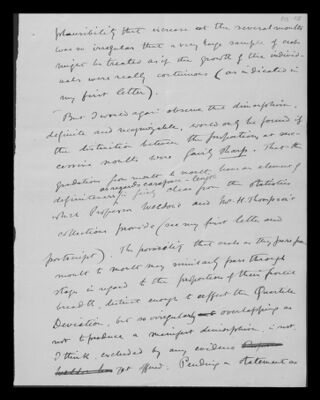 plausibility that increase at the several moults
was so irregular that a very large sample of crabs
might be treated as if the growth of the individ-
uals were really continuous (as indicated in
my first letter).
But I would again observe that dimorphism,
definite and recognisable, would only be found if
the distinction between the proportions at suc-
cessive moults were fairly sharp. That the
gradation from moult to moult have an element of
definiteness as regards carapace-length is fairly clear from the statistics
which Professor Weldon's and Mr. H. Thompson's
collections provide (see my first letter and
postscript). The possibility that crabs as they pass from
moult to moult may similarly pass through
stages in regard to the proportions of their frontal
breadth, distinct enough to affect the Quartile
Deviation, but so irregularly overlapping as
not to produce a manifest dimorphism, is not,
I think, excluded by any evidence
yet offered. Pending a statement as